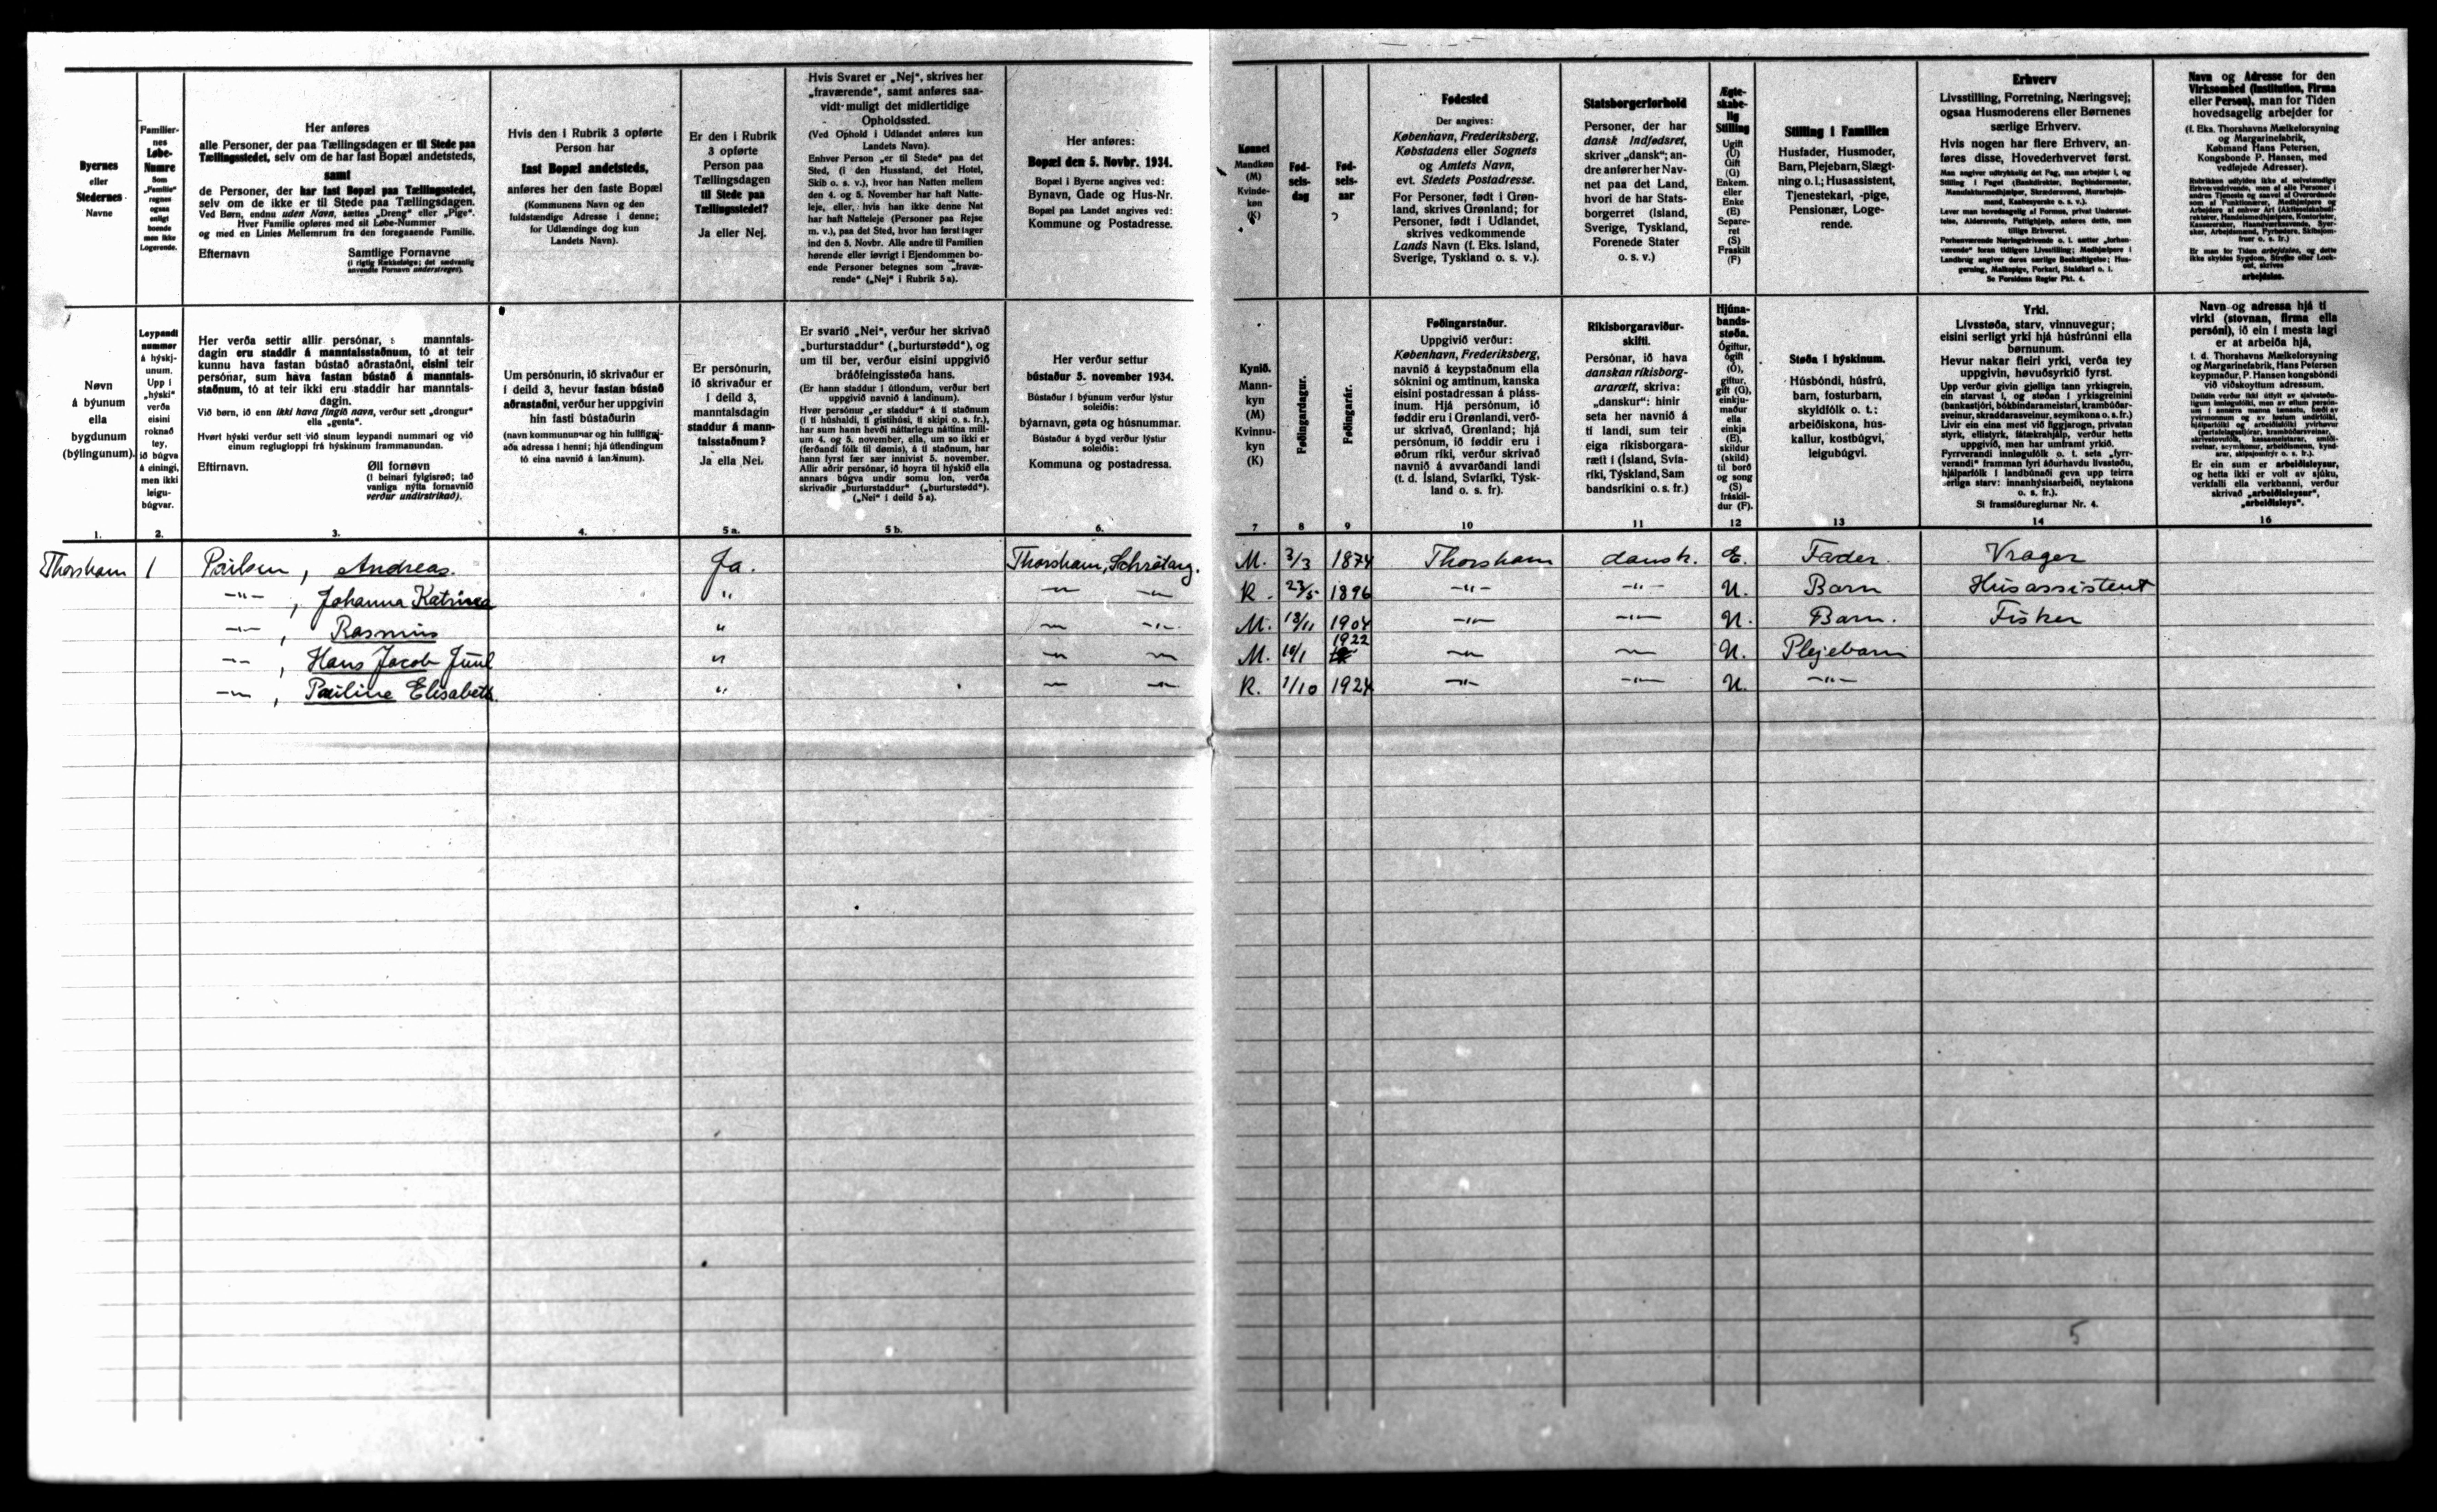 Byernes
eller
Stedernes
Navne
Familier-
nes
Løbe-
Numre
Som
„Familie"
regnes
ogsaa
enligt
boende
men ikke
Logerende.
Her anføres
alle Personer, der paa Tællingsdagen er til Stede paa
Tællingsstedet, selv om de har fast Bopæl andetsteds,
samt
de Personer, der har fast Bopæl paa Tællingsstedet,
selv om de ikke er til Stede paa Tællingsdagen.
Ved Børn, endnu uden Navn, sættes „Dreng" eller „Pige".
Hver Familie opføres med sit Løbe-Nummer
og med en Linies Mellemrum fra den foregaaende Familie.
Efternavn Samtlige Fornavne
(i rigtig Rækkefølge; det sædvanlig
anvendte Fornavn understreges).
Hvis den i Rubrik 3 opførte
Person har
fast Bopæl andetsteds,
anføres her den faste Bopæl
(Kommunens Navn og den
fuldstændige Adresse i denne;
for Udlændinge dog kun
Landets Navn).
Er den i Rubrik
3 opførte
Person paa
Tællingsdagen
til Stede paa
Tællingsstedet?
Ja eller Nej.
Hvis Svaret er „Nej", skrives her
„fraværende", samt anføres saa-
vidt muligt det midlertidige
Opholdssted.
(Ved Ophold i Udlandet anføres kun
Landets Navn).
Enhver Person „er til Stede" paa det
Sted, (i den Husstand, det Hotel,
Skib o. s. v.), hvor han Natten mellem
den 4. og 5. November har haft Natte-
leje, eller, hvis han ikke denne Nat
har haft Natteleje (Personer paa Rejse
m. v.), paa det Sted, hvor han først tager
ind den 5. Novbr. Alle andre til Familien
hørende eller iøvrigt i Ejendommen bo-
ende Personer betegnes som „fravæ-
rende" („Nej" i Rubrik 5a).
Her anføres:
Bopæl den 5. Novbr. 1934.
Bopæl i Byerne angives ved:
Bynavn, Gade og Hus-Nr.
Bopæl paa Landet angives ved:
Kommune og Postadresse.
Kønnet
Mandkøn
(M)
Kvinde-
køn
(K)
Fød-
sels-
dag
Fød-
sels-
aar
Fødested
Der angives:
København, Frederiksberg,
Købstadens eller Sognets
og Amtets Navn,
evt. Stedets Postadresse.
For Personer, født i Grøn-
land, skrives Grønland; for
Personer, født i Udlandet,
skrives vedkommende
Lands Navn (f. Eks. Island,
Sverige, Tyskland o. s. v.).
Statsborgerforhold
Personer, der har
dansk Indfødsret,
skriver „dansk"; an-
dre anfører her Nav-
net paa det Land,
hvori de har Stats-
borgerret (Island,
Sverige, Tyskland,
Forenede Stater
o. s. v.)
Ægte-
skabe-
lig
Stilling
Ugift
(U)
Gift
(G)
Enkem.
eller
Enke
(E)
Separe-
ret
(S)
Fraskilt
(F)
Stilling i Familien
Husfader, Husmoder,
Barn, Plejebarn, Slægt-
ning o. l.; Husassistent,
Tjenestekarl, -pige,
Pensionær, Loge-
rende.
Erhverv
Livsstilling, Forretning, Næringsvej;
ogsaa Husmoderens eller Børnenes
særlige Erhverv.
Hvis nogen har flere Erhverv, an-
føres disse, Hovederhvervet først.
Se Forsidens Regler Pkt. 4.
Navn og Adresse for den
Virksomhed (Institution, Firma
eller Person), man for Tiden
hovedsagelig arbejder for
(f. Eks. Thorshavns Mælkeforsyning
og Margarinefabrik,
Købmand Hans Petersen,
Kongsbonde P. Hansen, med
vedføjede Adresser).
arbejdsløs.
Nøvn
á býunum
ella
bygdunum
(býlingunum).
Leypandi
nummer
á hýskj-
unum.
Upp i
„hýski"
verða
eisini
roknað
tey,
ið búgva
á eining,
men ikki
leigu-
búgvar.
Her verða settir allir persónar, manntals-
dagin eru staddir á manntalsstaðnum, tó at teir
kunnu hava fastan bústað aðrastaðni, eisini teir
persónar, sum hava fastan bústað á manntals-
staðnum, tó at teir ikki eru staddir har manntals-
dagin.
Við børn, ið enn ikki hava fingið navn, verður sett „drongur"
ella „genta".
Hvørt hýski verður sett við sínum leypandi nummari og við
einum regluglоppi frá hýskinum frammanundan.
Eftirnavn. Øll fornøvn
(i beinari fylgisrøð; tað
vanliga nýtta fornavnið
verður undirstrikað).
Um persónurin, ið skrivaður er
i deild 3, hevur fastan bústað
aðrastaðni, verður her uppgivin
hin fasti bústaðurin
(navn kommununnar og hin fullfíggj-
aða adressa i henni; hjá útlendingum
tó eina navnið á landinum).
Er persónurin,
ið skrivaður er
i deild 3,
manntalsdagin
staddur á mann-
talsstaðnum?
Ja ella Nei.
Er svarið „Nei", verður her skrivað
„burturstaddur" („burturstødd"), og
um til ber, verður eisini uppgivið
bráðfeingisstøða hans.
(Er hann staddur i útlondum, verður bert
uppgivið navnið á landinum).
Hvør persónur „er staddur" á ti staðnum
(i ti húshaldi, ti gistihúsi, ti skipi o. s. fr.),
har sum hann hevði náttarlegu náttina mill-
um 4. og 5. november, ella, um so ikki er
(ferðandi fólk til dømis), á ti staðnum, har
hann fyrst fær sær innivist 5. november.
Allir aðrir persónar, ið hoyra til hýskið ella
annars búgva undir somu lon, verða
skrivaðir „burturstaddur" („burturstødd").
(„Nei" i deild 5 a).
Her verður settur
bústaður 5. november 1934.
Bústaður i býunum verður lýstur
soleiðis:
býarnavn, gøta og húsnummar.
Bústaður á bygd verður lýstur
soleiðis:
Kommuna og postadressa.
Kynið.
Mann-
kyn
(M)
Kvinnu-
kyn
(K)
Føðingardagur.
Føðingarár.
Føðingarstaður.
Uppgivið verður:
København, Frederiksberg,
navnið á keypstaðnum ella
sóknini og amtinum, kanska
eisini postadressan á pláss-
inum. Hjá persónum, ið
føddir eru i Grønlandi, verð-
ur skrivað, Grønland; hjá
persónum, ið føddir eru i
øðrum ríki, verður skrivað
navnið á avvarðandi landi
(t. d. Ísland, Svíaríki, Týsk-
land o. s. fr).
Ríkisborgaraviður-
skifti.
Persónar, ið hava
danskan ríkisborg-
ararætt, skriva:
„danskur": hinir
seta her navnið á
ti landi, sum teir
eiga ríkisborgara-
rætt i (Ísland, Svía-
ríki, Týskland, Sam
bandsríkini o. s. fr.)
Hjúna-
bands-
støða.
Ógiftur,
ógift
(Ó),
giftur,
gift (G),
einkju-
maður
ella
einkja
(E),
skildur
(skild)
til borð
og song
(S)
fráskil-
dur (F).
Støða i hýskinum.
Húsbóndi, húsfrú,
barn, fosturbarn,
skyldfólk o. t.:
arbeiðiskona, hús-
kallur, kostbúgvi,
leigubúgvi.
Yrki.
Lívsstøða, starv, vinnuvegur;
eisini serligt yrki hjá húsfrúnni ella
børnunum.
Hevur nakar fleiri yrki, verða tey
uppgivin, høvuðsyrkið fyrst.
Si framsíðureglurnar Nr. 4.
Navn og adressa hjá ti
virki (stovnan, firma ella
persóni), ið ein i mesta lagi
er at arbeiða hjá,
t. d. Thorshavns Mælkeforsyning
og Margarinefabrik, Hans Petersen
keypmaður, P. Hansen kongsbóndi
við viðskoyttum adressum.
Er ein sum er arbeiðisleysur,
og hetta ikki er volt av sjúku,
verkfalli ella verkbanni, verður
skrivað „arbeiðisleysur",
„arbeiðisleys".
1. 2. 3. 4. 5 a. 5 b. 6. 7 8 9 10 11 12 13 14 16
Thorshavn 1 Poulsen, Andreas. Ja. Thorshavn, M. 3/3 1874 Thorshavn dansk. E. Fader. Vrager
-"- , Johanna Katrina " -"- -"- K. 23/5 1896 -"- -"- U. Barn Husassistent
-"- , Rasmus " -"- -"- M. 13/11 1904 -"- -"- U. Barn. Fisker
-"- , Hans Jacob Juul " -"- -"- M. 10/1 1922 -"- -"- U. Plejebarn
-"- , Pauline Elisabeth. " -"- -"- K. 1/10 1924 -"- -"- U. -"-
5